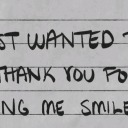 ST WANTED T
THANK YOU FO
ING ME SMILE